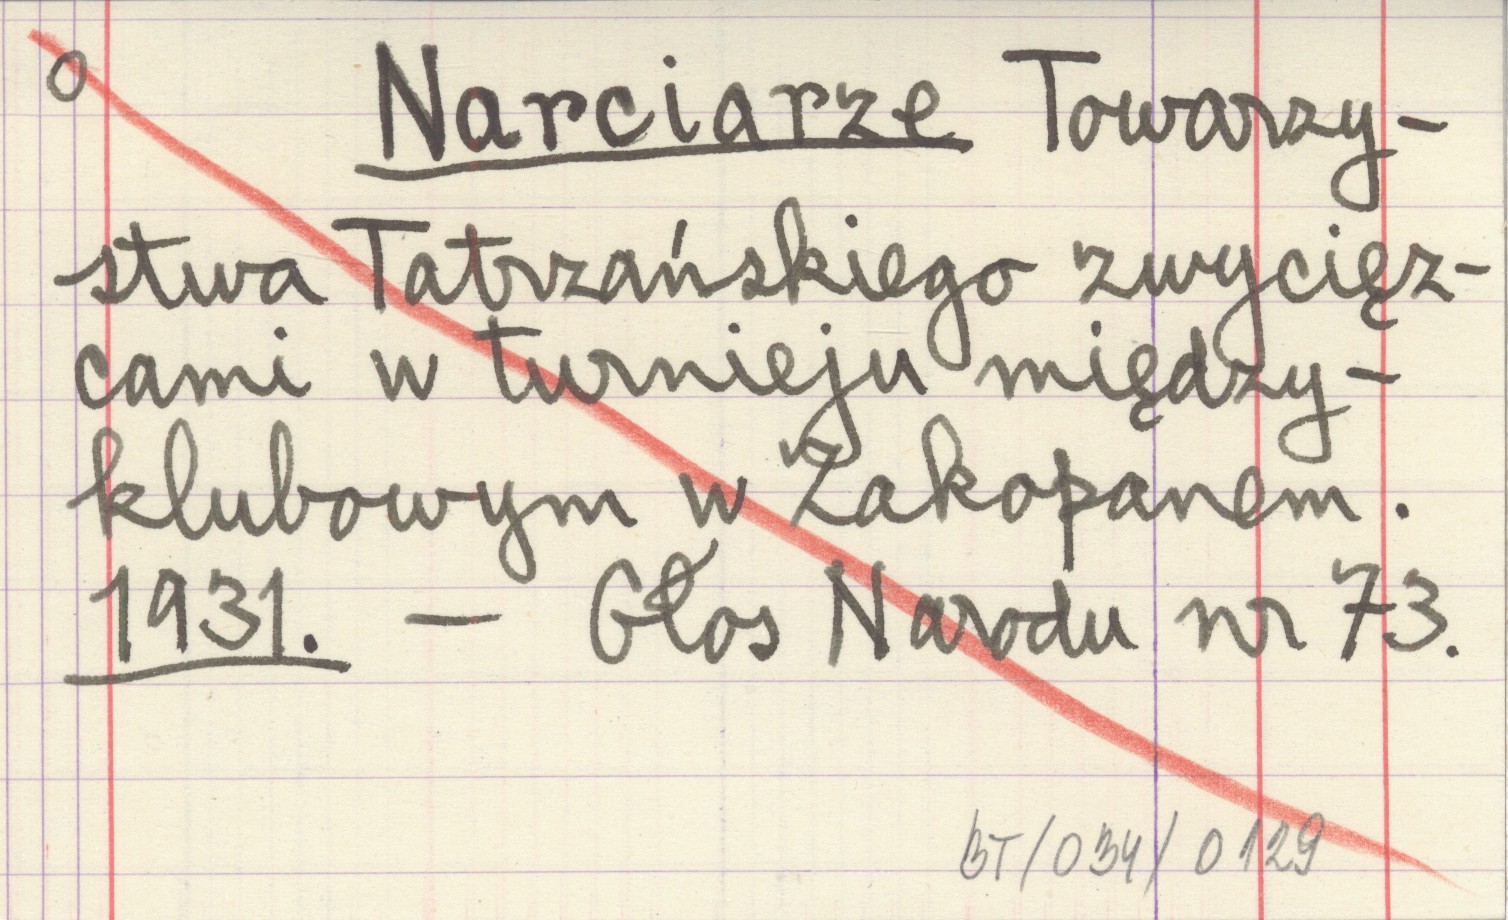 o Narciarze Towarzy-
stwa Tatrzańskiego zwycięz-
cami w turnieju między-
klubowym w Zakopanem.
1931. — Głos Narodu nr 73.
BT/034/0129